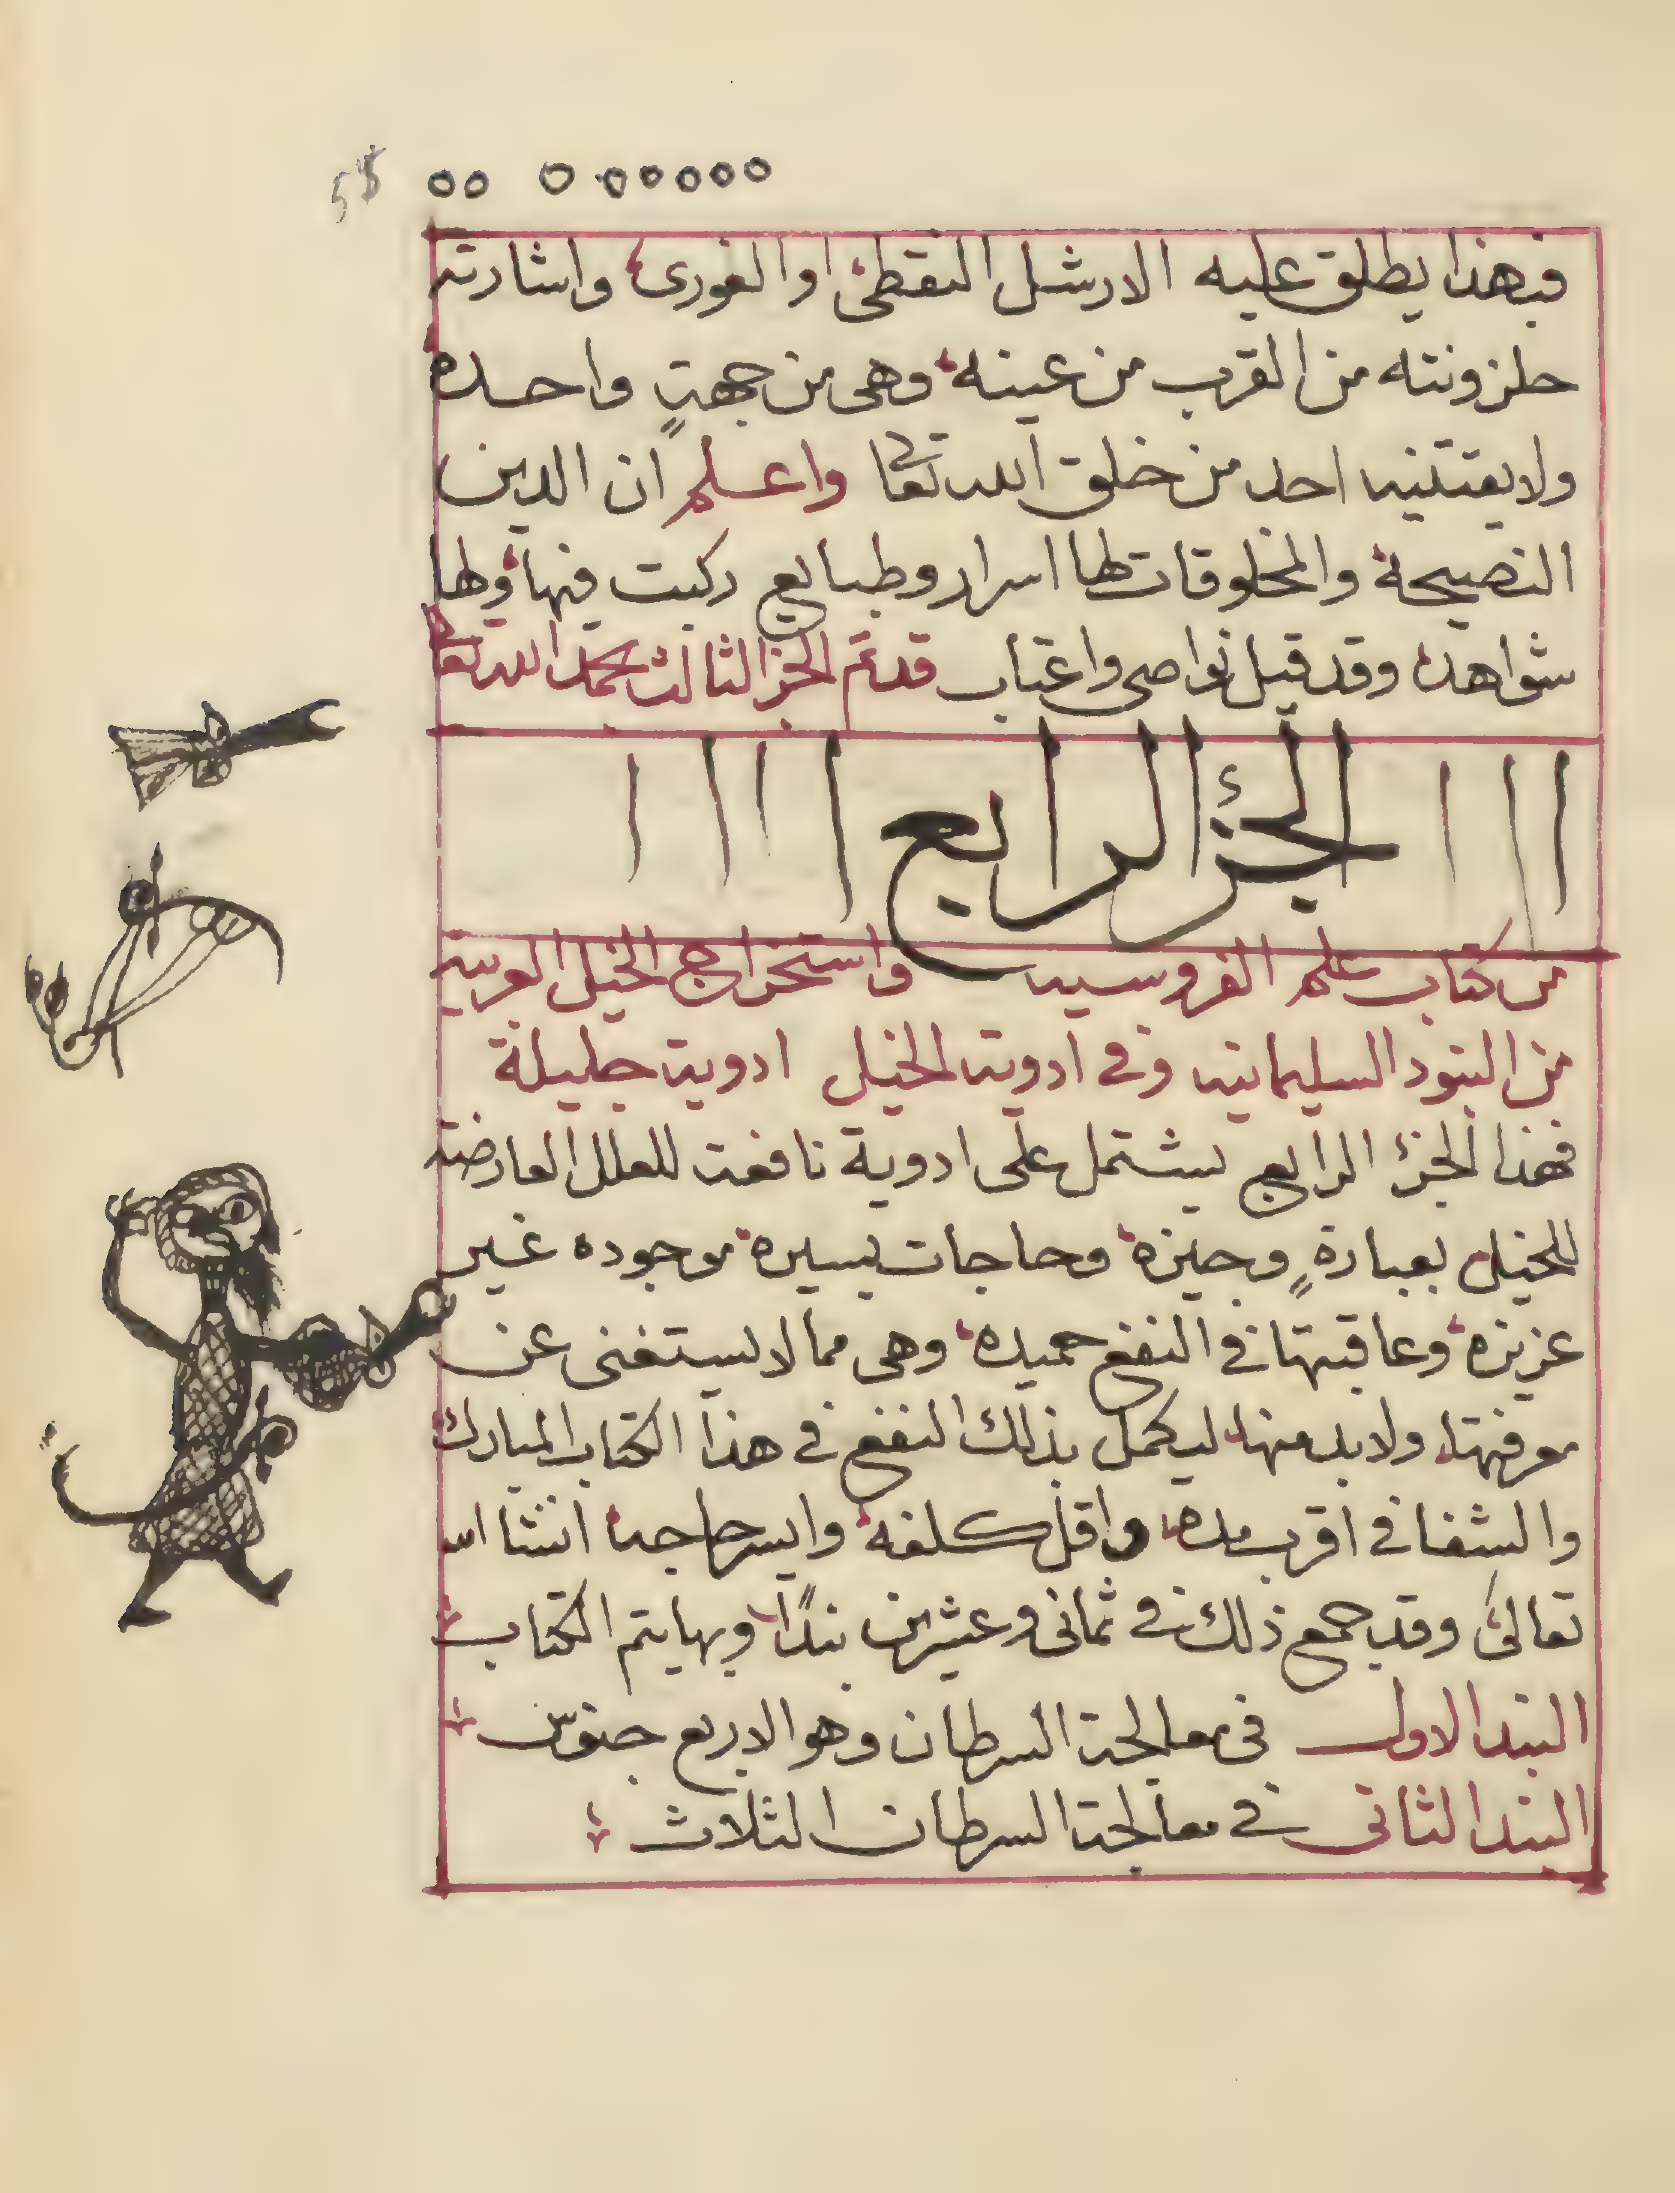 فبهذا يطلق عليه الارشل النقطئ او الفورى واشارته
حلزونته من القرب من عينه وهى من جهتٍ واحده
ولا يقتنيه احد من خلق الله تعا واعلم ان الدين
النصيحة والمخلوقات لها اسرار وطبايع ركبت فيها ولها
شواهد وقد قيل نواصى واعتاب قد تم الجز الثالث بحمد الله تعا
الجزء الرابع
من كتاب علم الفروسيه واستخراج الخيل العربيه
من البنود السليمانيه وفى ادويت الخيل ادويت جليلة
فهذا الجزء الرابع يشتمل على ادوية نافعت للعلل العارضه
للخيل بعبارةٍ وجيزة وحاجات يسيره موجوده غير
عزيزه وعاقبتها فى النفع حميده وهى مما لا يستغنى عن
معرفتها ولا بد منها ليكمل بذلك النفع فى هذا الكتاب المبارك
والشفا فى اقرب مده واقل كلفه وايسر حاجه انشا الله
تعالى وقد جمع ذلك فى ثمانى وعشرين بندًا وبها يتم الكتاب
البند الاول فى معالجة السرطان وهو الاربع جنوس
البند الثانى فى معالجة السرطان الثلاث